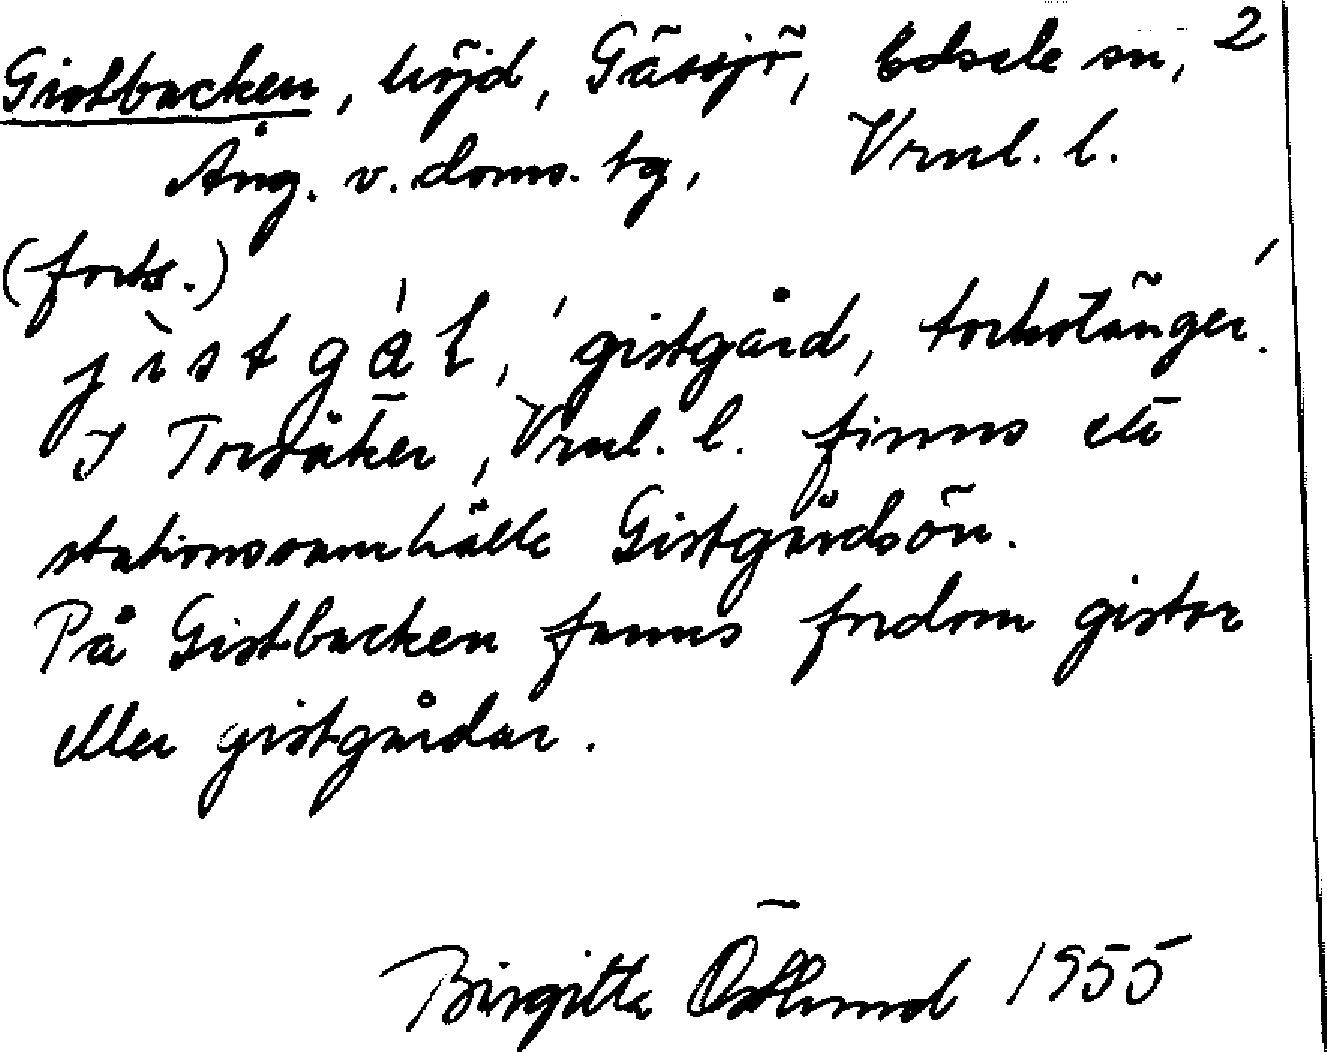 Gistbacken, höjd, Gässjö, Edsele sn, 2
Ång. v. doms. tg, Vrnl. l.
(forts.)
jistgáḷ, 'gistgård, torkstänger'.
I Torsåker, Vrnl. l. finns ett
stationssamhälle Gistgårdsön.
På Gistbacken fanns fordom gistor
eller gistgårdar.
Birgitta Östlund 1955